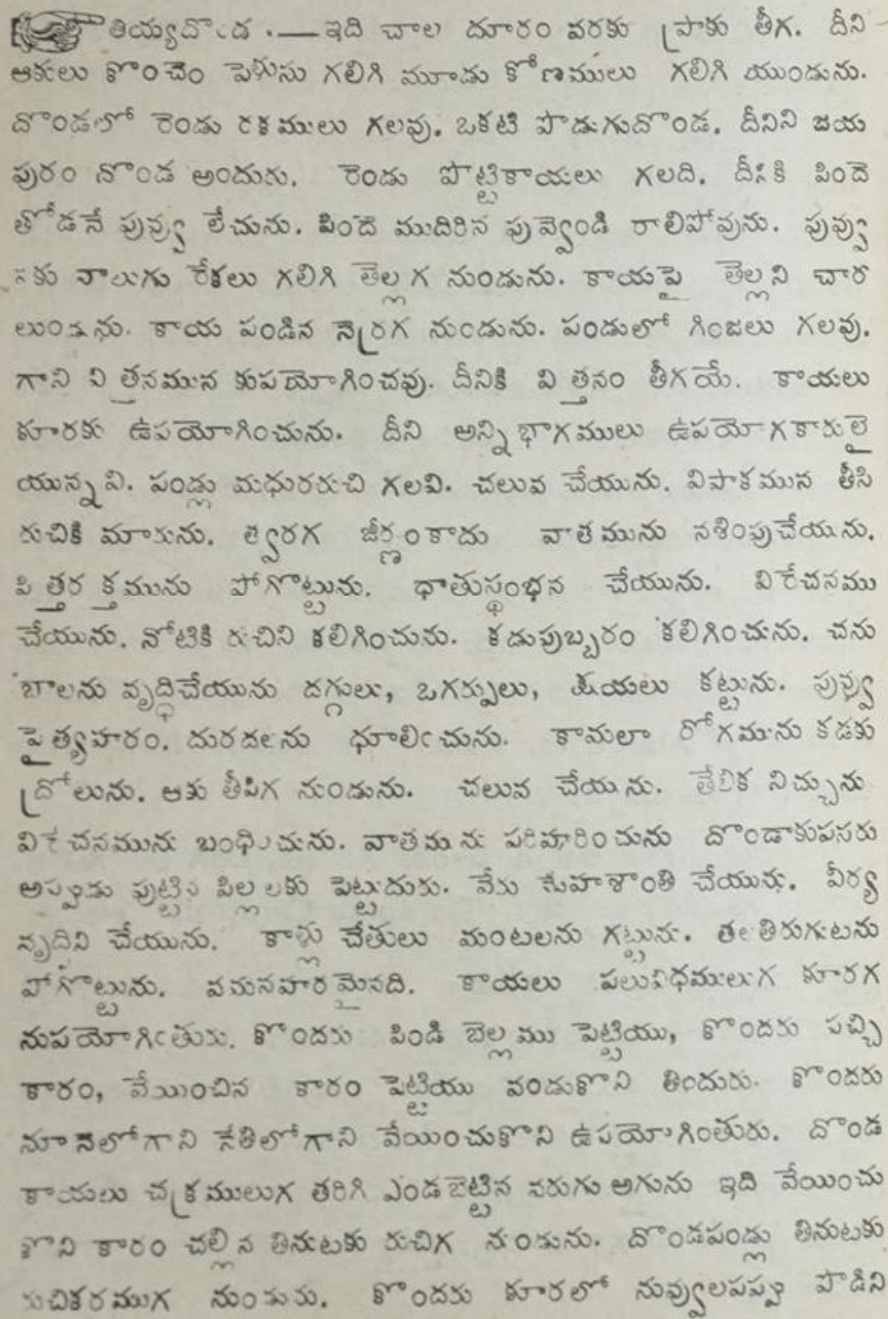 తియ్యదొండ .— ఇది చాల దూరం వరకు ప్రాకు తీగ. దీని
ఆకులు కొంచెం పెళుసు గలిగి మూడు కోణములు గలిగి యుండును.
దొండలో రెండు రకములు గలవు. ఒకటి పొడుగుదొండ. దీనిని జయ
పురం దొండ అందురు. రెండు పొట్టికాయలు గలది. దీనికి పిందె
తోడనే పువ్వు లేచును. పిందె ముదిరిన పువ్వెండి రాలిపోవును. పువ్వు
నకు నాలుగు రేకలు గలిగి తెల్లగ నుండును. కాయపై తెల్లని చార
లుండును. కాయ పండిన నెర్రగ నుండును. పండులో గింజలు గలవు.
గాని విత్తనమున కుపయోగించవు. దీనికి విత్తనం తీగయే. కాయలు
కూరకు ఉపయోగించును. దీని అన్నిభాగములు ఉపయోగకారులై
యున్నవి. పండ్లు మధురరుచి గలవి. చలువ చేయును. విపాకమున తీసి
రుచికి మారును. త్వరగ జీర్ణంకాదు వాతమును నశింపుచేయును.
పిత్తరక్తమును పోగొట్టును. ధాతుస్థంభన చేయును. విరేచనము
చేయును. నోటికి రుచిని కలిగించును. కడుపుబ్బరం కలిగించును. చను
బాలను వృద్ధిచేయును దగ్గులు, ఒగర్పులు, క్షయలు కట్టును. పువ్వు
పైత్యహరం. దురదలను ధూలించును. కామలా రోగమును కడకు
ద్రోలును. ఆకు తీపిగ నుండును. చలువ చేయును. తేలిక నిచ్చును
విరేచనమును బంధించును. వాతమును పరిహరించును దొండాకుపసరు
అప్పుడు పుట్టిన పిల్లలకు పెట్టుదురు. చేయును. వీర్య
వృద్ధిని చేయును. కాళ్లు చేతులు మంటలను గట్టును. తలతిరుగుటను
పోగొట్టును. వమనహరమైనది. కాయలు పలువిధములుగ కూరగ
నుపయోగింతురు. కొందరు పిండి బెల్లము పెట్టియు, కొందరు పచ్చి
కారం, వేయించిన కారం పెట్టియు వండుకొని తిందురు. కొందరు
నూనెలోగాని నేతిలోగాని వేయించుకొని ఉపయోగింతురు. దొండ
కాయలు చక్రములుగ తరిగి ఎండబెట్టిన వరుగు అగును ఇది వేయించు
కొని కారం చల్లిన తినుటకు రుచిగ నుండును. దొండపండ్లు తినుటకు
రుచికరముగ నుండును. కొందరు కూరలో నువ్వులపప్పు పొడిని